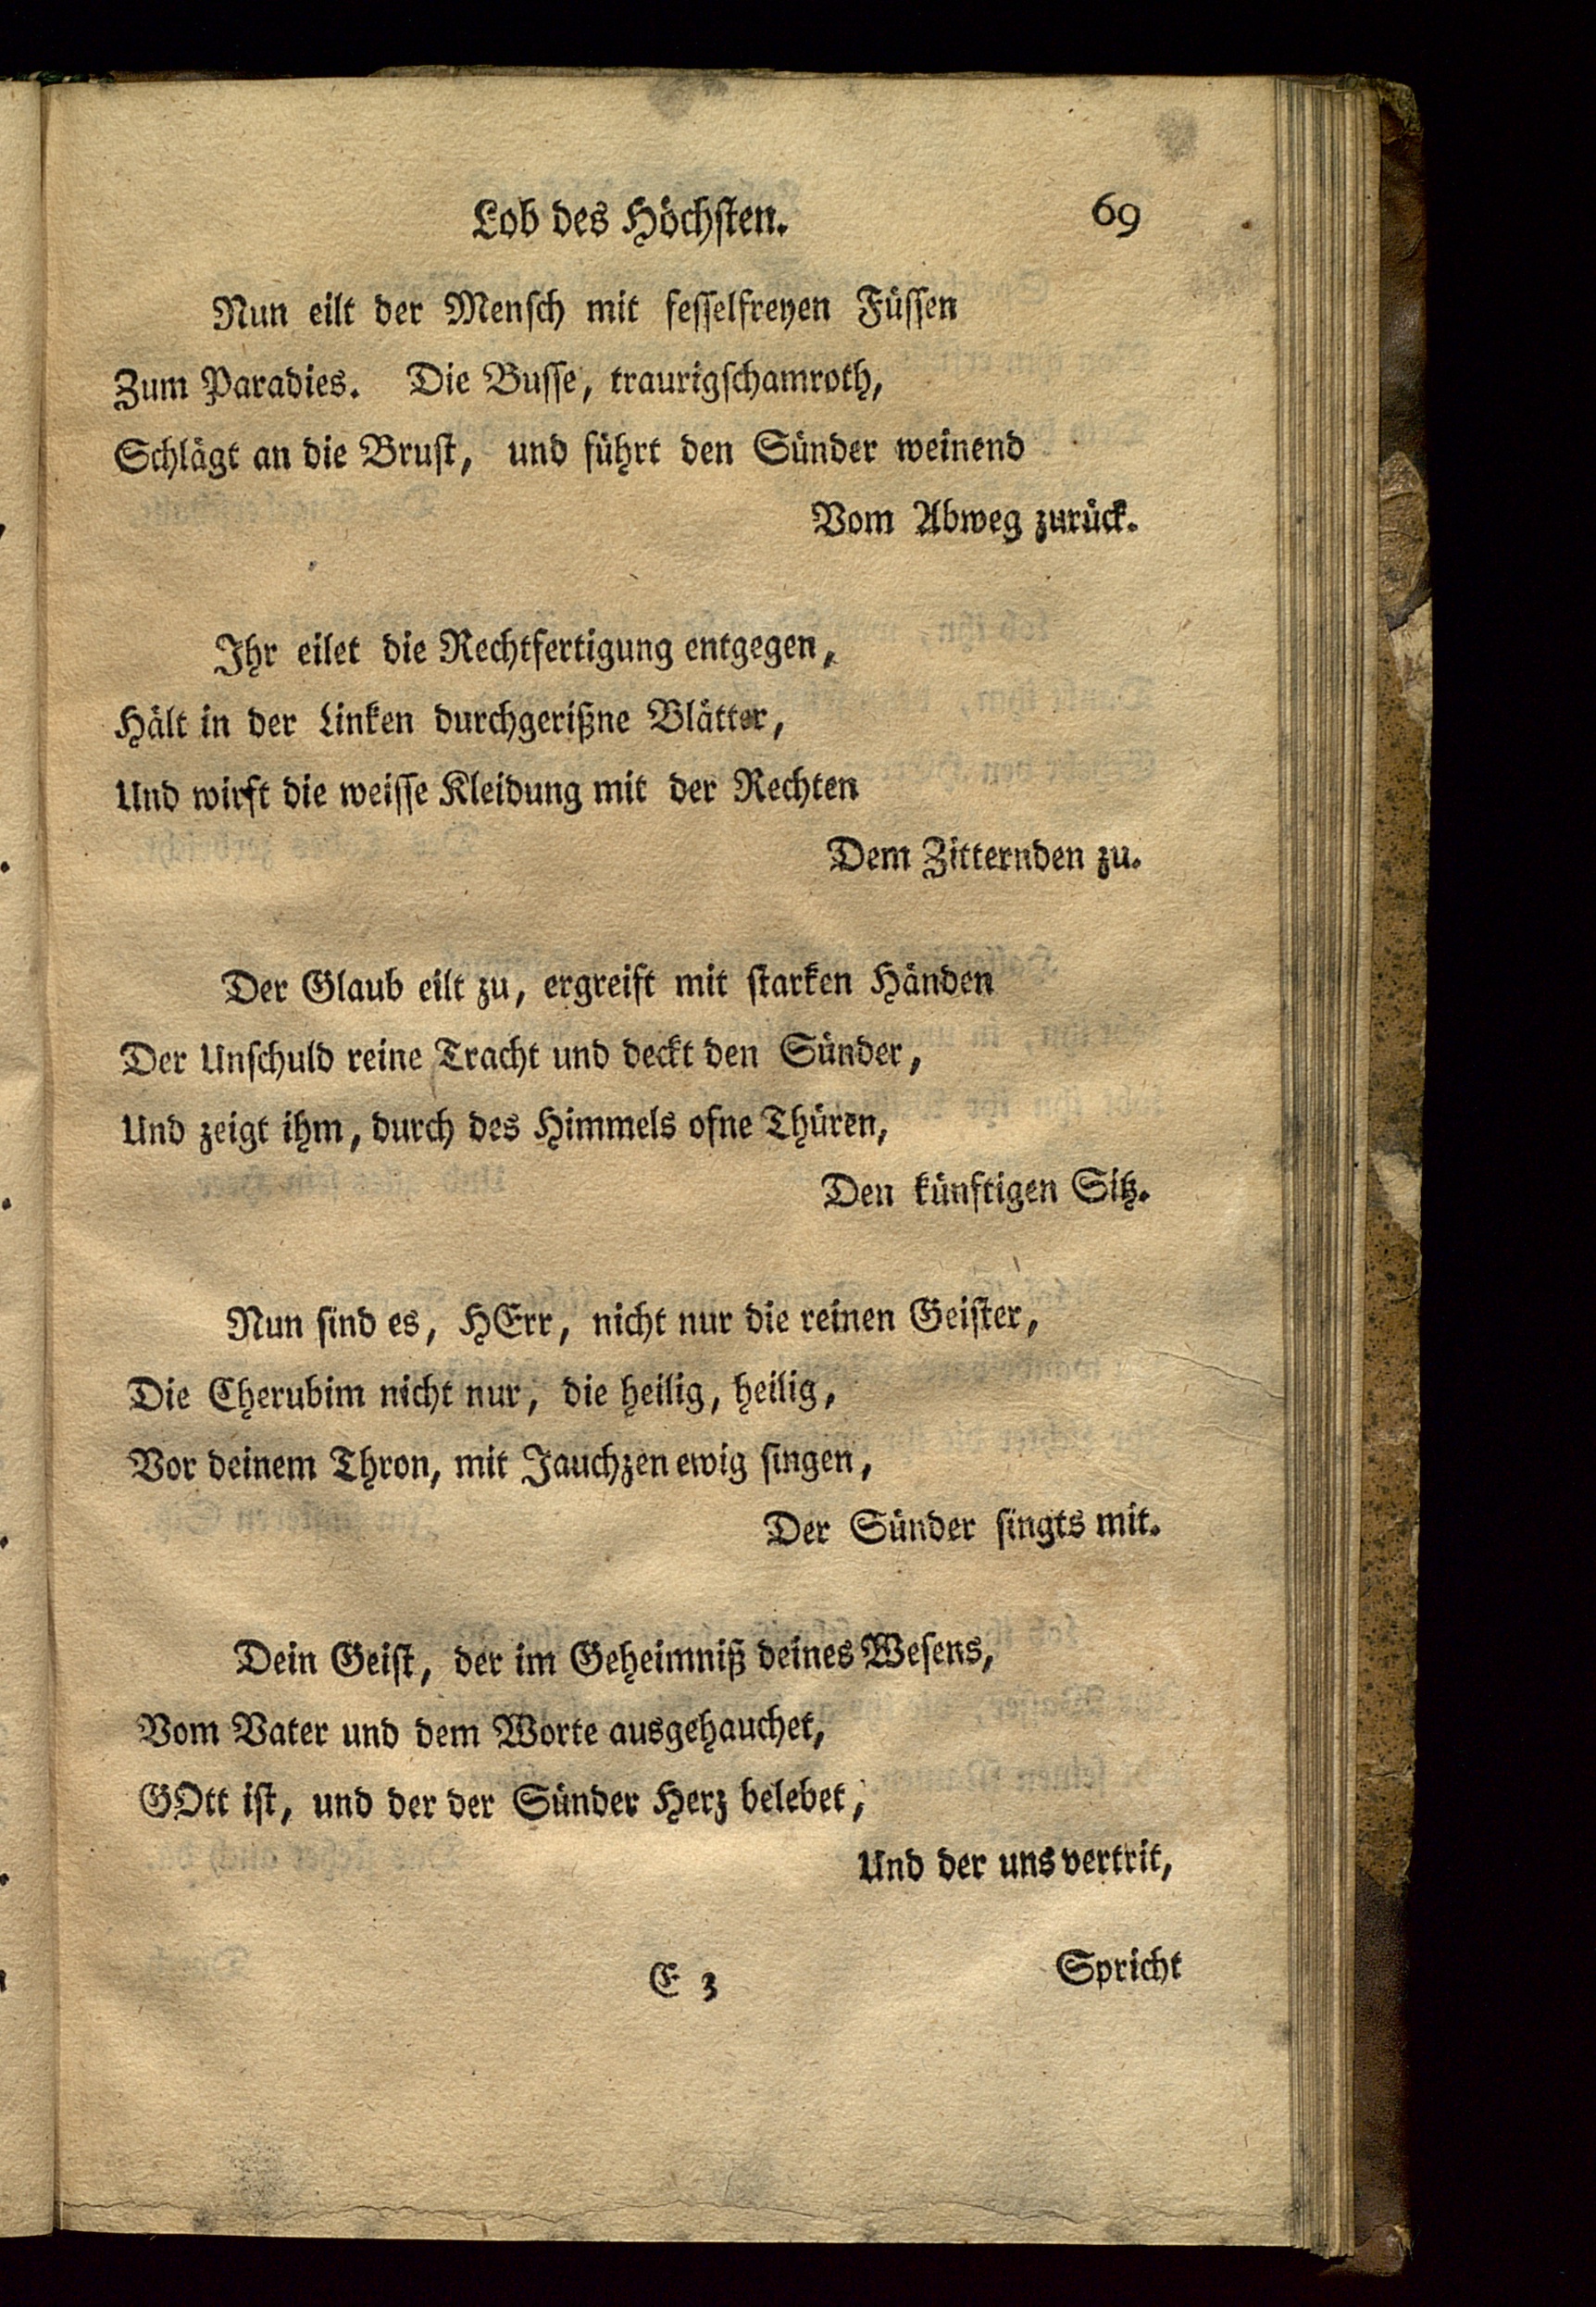 Lob des Höchsten. 69
Nun eilt der Mensch mit fesselfreyen Füssen
Zum Paradies. Die Busse, traurigschamroth,
Schlägt an die Brust, und führt den Sünder weinend
Vom Abweg zurück.
Ihr eilet die Rechtfertigung entgegen,
Hält in der Linken durchgerißne Blätter,
Und wirft die weisse Kleidung mit der Rechten
Dem Zitternden zu.
Der Glaub eilt zu, ergreift mit starken Händen
Der Unschuld reine Tracht und deckt den Sünder,
Und zeigt ihm, durch des Himmels ofne Thüren,
Den künftigen Sitz.
Nun sind es, HErr, nicht nur die reinen Geister,
Die Cherubim nicht nur, die heilig, heilig,
Vor deinem Thron, mit Jauchzen ewig singen,
Der Sünder singts mit.
Dein Geist, der im Geheimniß deines Wesens,
Vom Vater und dem Worte ausgehauchet,
GOtt ist, und der der Sünder Herz belebet,
Und der uns vertrit,
E 3 Spricht